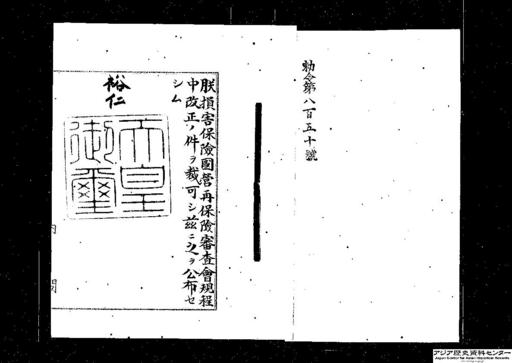 勅令第八百五十號
朕損害保險國營再保險審査會規程
中改正ノ件ヲ裁可シ茲ニ之ヲ公布セ
シム
裕仁
天皇
御璽
内閣
アジア歴史資料センター
Japan Center for Asian Historical Records